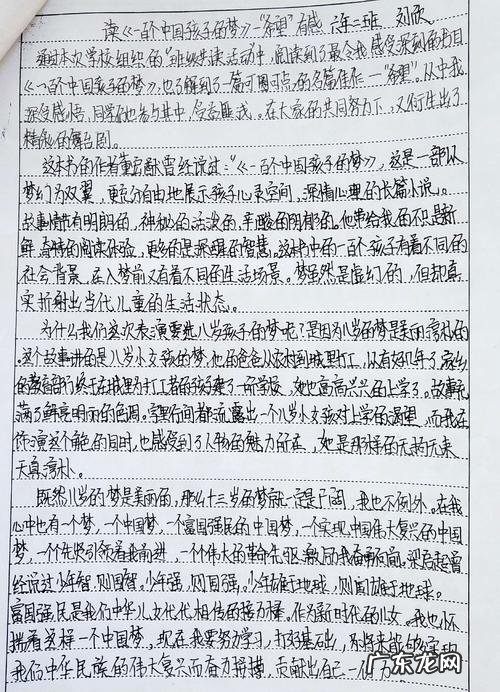 读《一百个中国孩子的梦》"希望"有感 六年二班 刘欣
通过本次学校组织的"班级共读活动中,阅读到了最令我感受深刻的书目
《一百个中国孩子的梦》,也了解到了一篇可圈可点的名篇佳作—"希望"。从中我
深受感悟,同学们也参与其中,受益匪浅。在大家的共同努力下,又衍生出了
精彩的舞台剧。
这本书的作者董宏猷曾经说过:"《一百个中国孩子的梦》,这是一部以
梦幻为双翼,更充分自由地展示孩子心灵空间,深情心理的长篇小说。
故事情节有明朗的,神秘的活泼的,辛酸的阴郁的。他带给我的不只是新
鲜、奇特的阅读体验,更多的是深邃的智慧。这本书中的一百个孩子有着不同的
社会背景,在入梦前又有着不同的生活场景。梦虽然是虚幻的,但却真
实折射出当代儿童的生活状态。
为什么我们这次表演要选八岁孩子的梦呢?是因为八岁的梦是美丽
这个故事讲的是八岁小女孩的梦,他的爸爸从农村到城里打工,从有好几年了,家乡
的 终于在城里为打工者的孩子建了一所学校,她也高高兴兴的上学了。故事充
满了鲜亮明丽的色调。字里行间都流露出一个八岁小女孩对上学的渴望,而我在
饰演这个角色的同时,也感受到了人物的魅力所在,她是那样的无拘无束
天真
既然八岁的梦是美丽的,那么十三岁的梦就一定是 ,我也不例外。在我
心中也有一个梦,一个中国梦,一个富国强民的中国梦,一个实现中国伟大复兴的中国
梦,一个在 引领着我前进,一个伟大的革命先驱 梁启超曾
经说过少年智,则国智。少年强,则国强。少年雄于地球,则国雄于地球。
富国强民是我们中华儿女代代相传的接力棒。作为新时代的儿女,我也怀
揣着这样一个中国梦,现在我要努力学习,打好基础,
我们中华民族的伟大复兴而奋力拼搏,贡献出自己一份力
广东龙网